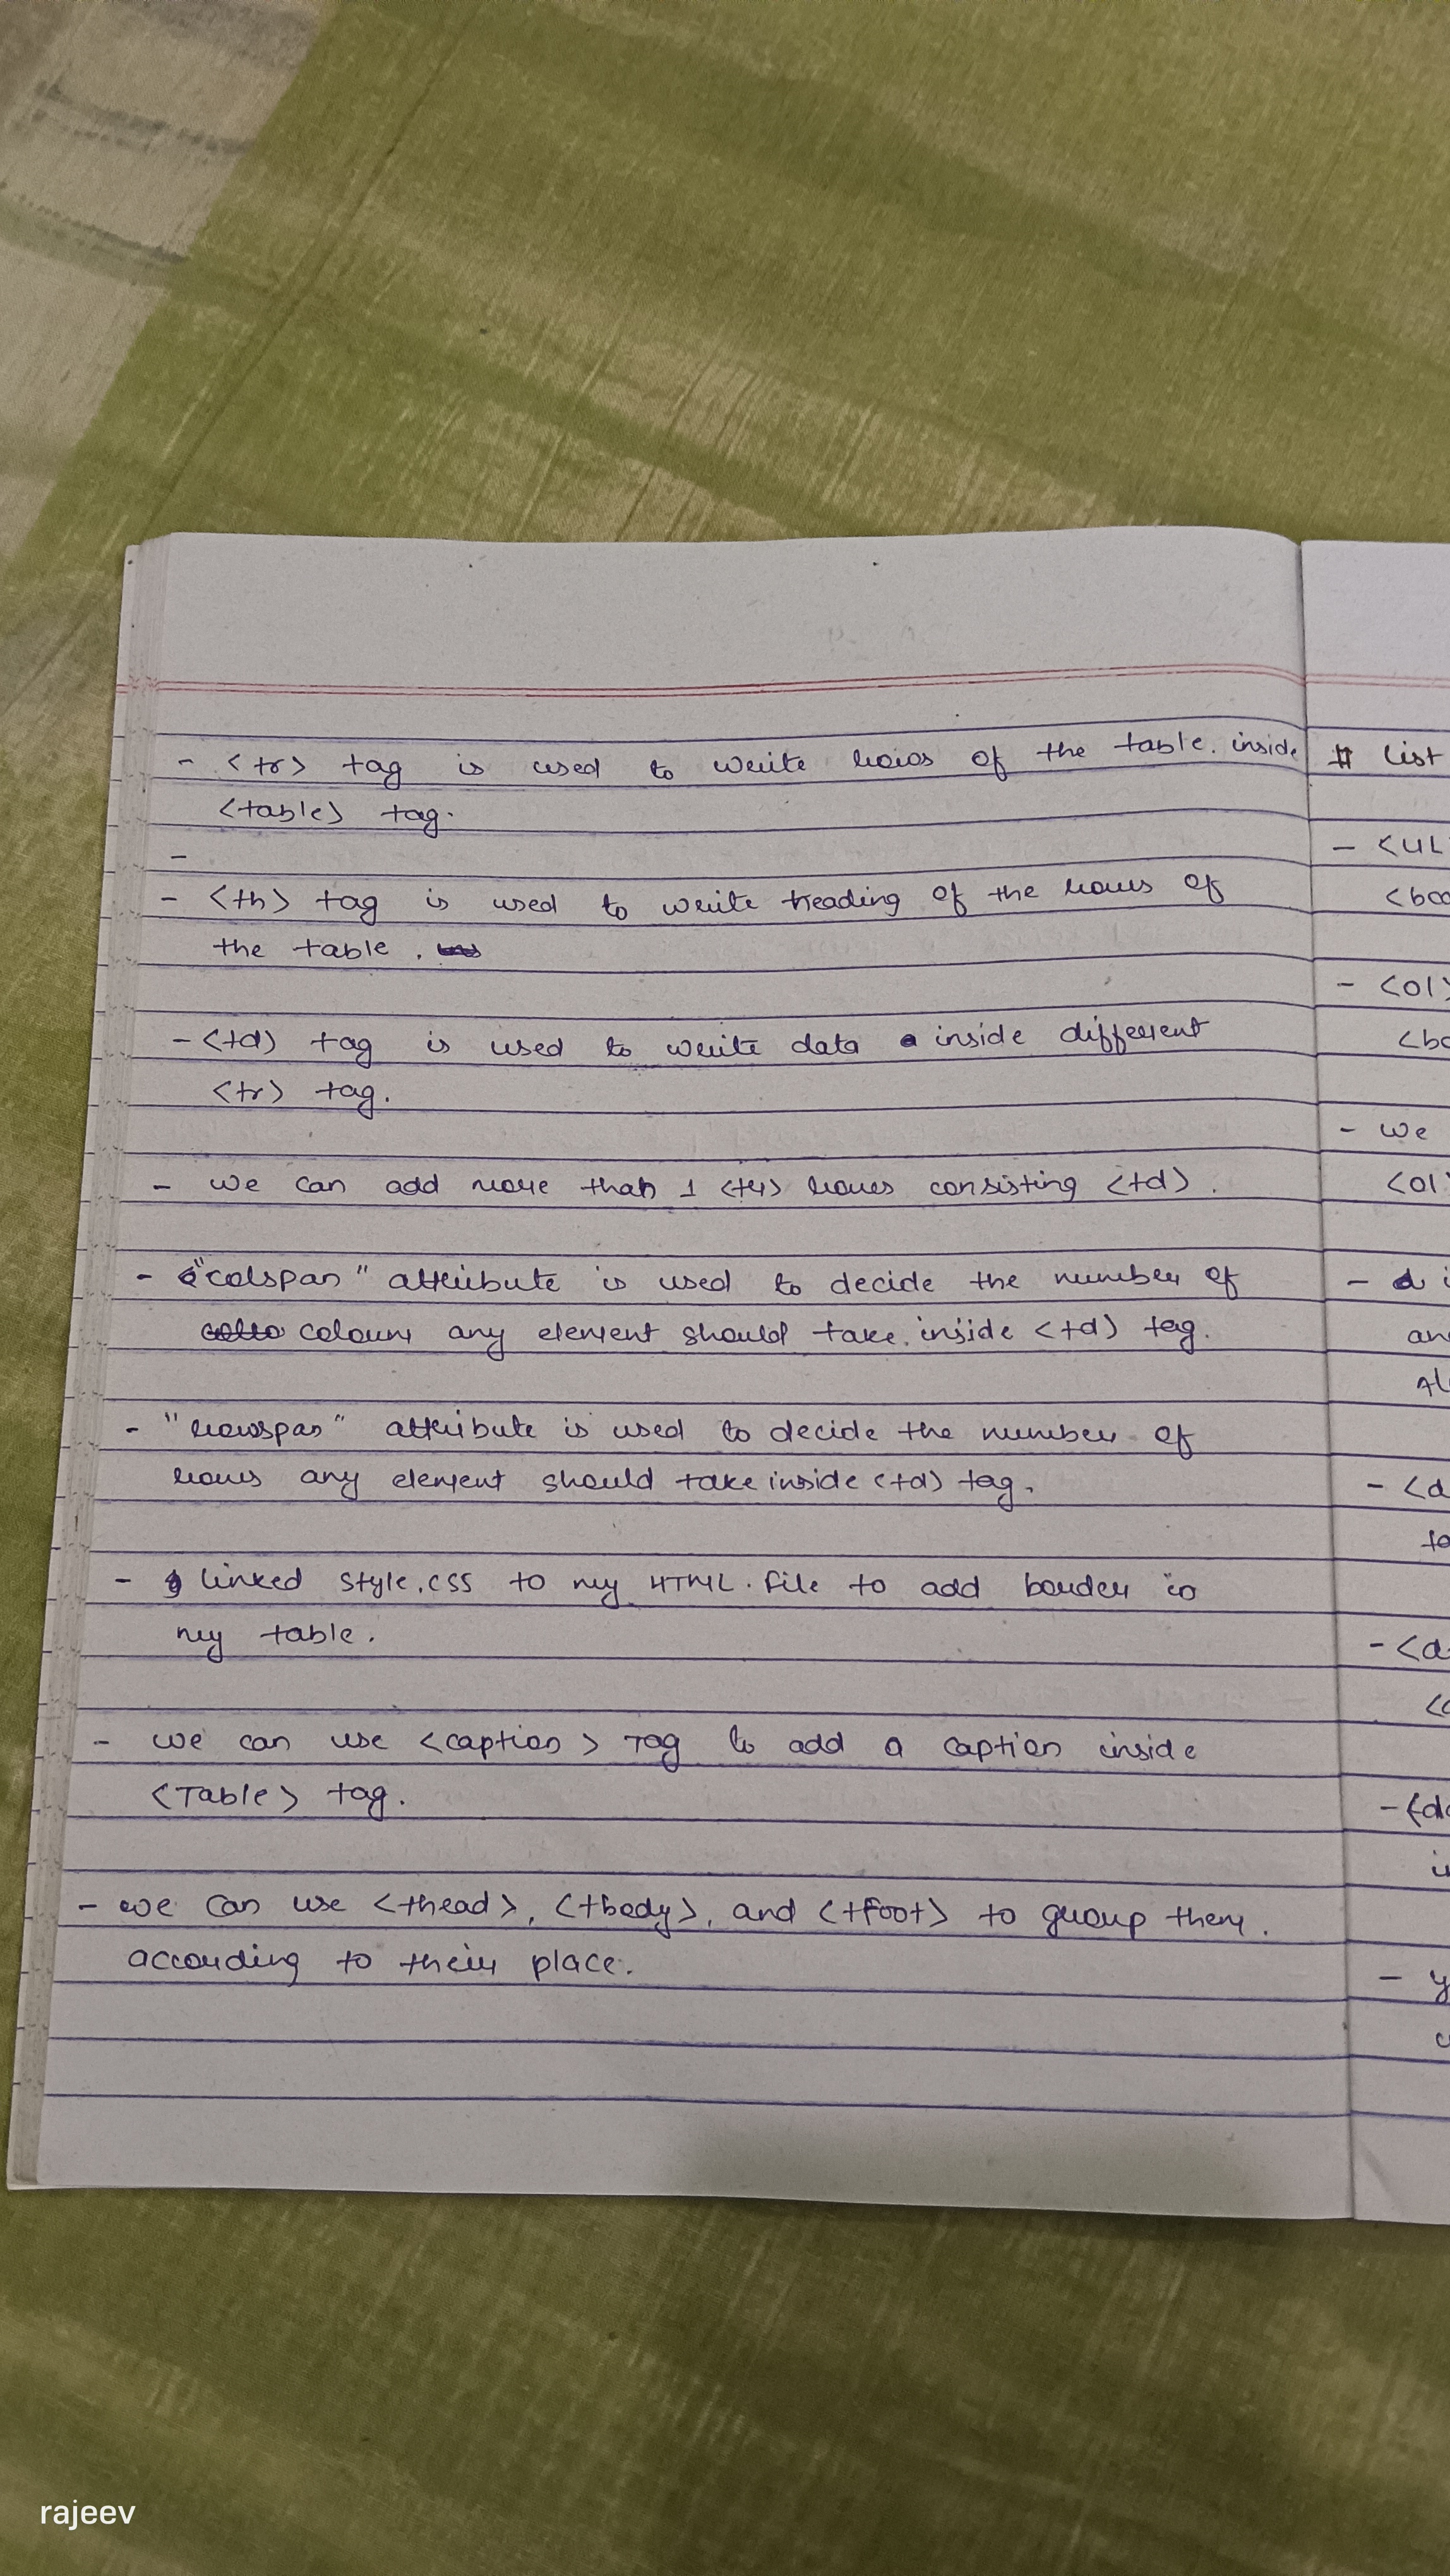 - <tr> tag is used to write rows of the table. inside
<table> tag.
-
- <th> tag is used to write heading of the rows of
the table.
- <td> tag is used to write data inside different
<tr> tag.
- we can add more than 1 <tr> rows consisting <td>.
- "colspan" attribute is used to decide the number of
coloum any element should take inside <td> tag.
- "rowspan" attribute is used to decide the number of
rows any element should take inside <td> tag.
- I linked style.css to my HTML.file to add border in
my table.
- we can use <caption> Tag to add a caption inside
<Table> tag.
- we can use <thead>, <tbody>, and <tfoot> to group them.
according to their place.
# List
- <UL
<boo
- <ol>
<bo
- we
<ol>
an
- <d
- <d
rajeev